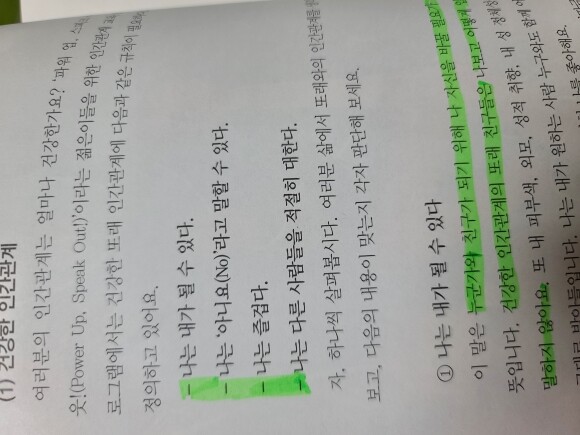 (1) 건강한 인간관계
여러분의 인간관계는 얼마나 건강한가요? '파워 업, 스피
웃!(Power Up, Speak Out!)'이라는 젊은이들을 위한 인간관계 교
로그램에서는 건강한 또래 인간관계에 다음과 같은 규칙이 필요하
정의하고 있어요.
- 나는 내가 될 수 있다.
- 나는 '아니요(No)'라고 말할 수 있다.
- 나는 즐겁다.
- 나는 다른 사람들을 적절히 대한다.
자, 하나씩 살펴봅시다. 여러분 삶에서 또래와의 인간관계를
보고, 다음의 내용이 맞는지 각자 판단해 보세요.
① 나는 내가 될 수 있다
이 말은 누군가와 친구가 되기 위해 나 자신을 바꿀 필요가
뜻입니다. 건강한 인간관계의 또래 친구들은 나보고 이렇게
말하지 않아요. 또 내 피부색, 외모, 성적 취향, 내 성 정체성
그대로 받아들입니다. 나는 내가 원하는 사람 누구와도 함께
를 좋아해요.